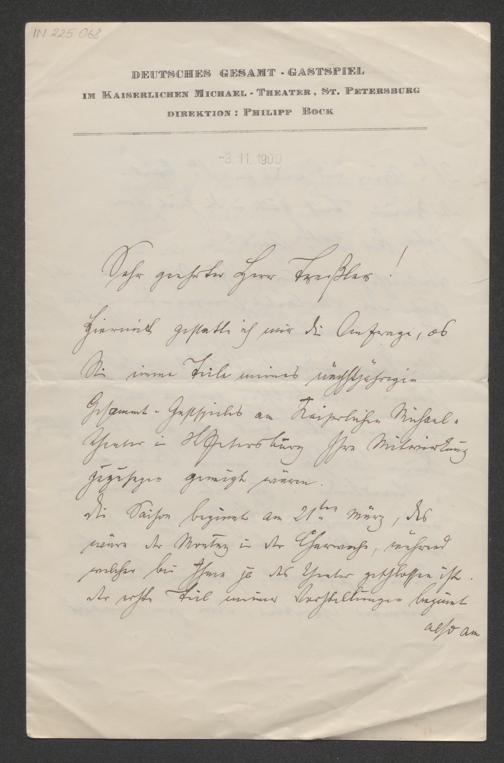 IN 225 068
DEUTSCHES GESAMT-GASTSPIEL
IM KAISERLICHEN MICHAEL-THEATER, ST. PETERSBURG
DIREKTION: PHILIPP BOCK
-3.11.1909
Sehr geehrter Herr Treßler!
Hiermit gestatte ich mir die Anfrage, ob
Sie einem Teile meines nächstjährigen
Gesammt-Gastspieles am Kaiserlichen Michael-
theater in St Petersburg Ihre Mitwirkung
zuzusagen geneigt wären.
Die Saison beginnt am 21ten März, das
wäre der Montag in der Charwoche, während
welcher bei Ihnen ja das Theater geschlossen ist.
Der erste Teil meiner Vorstellungen beginnt
also am